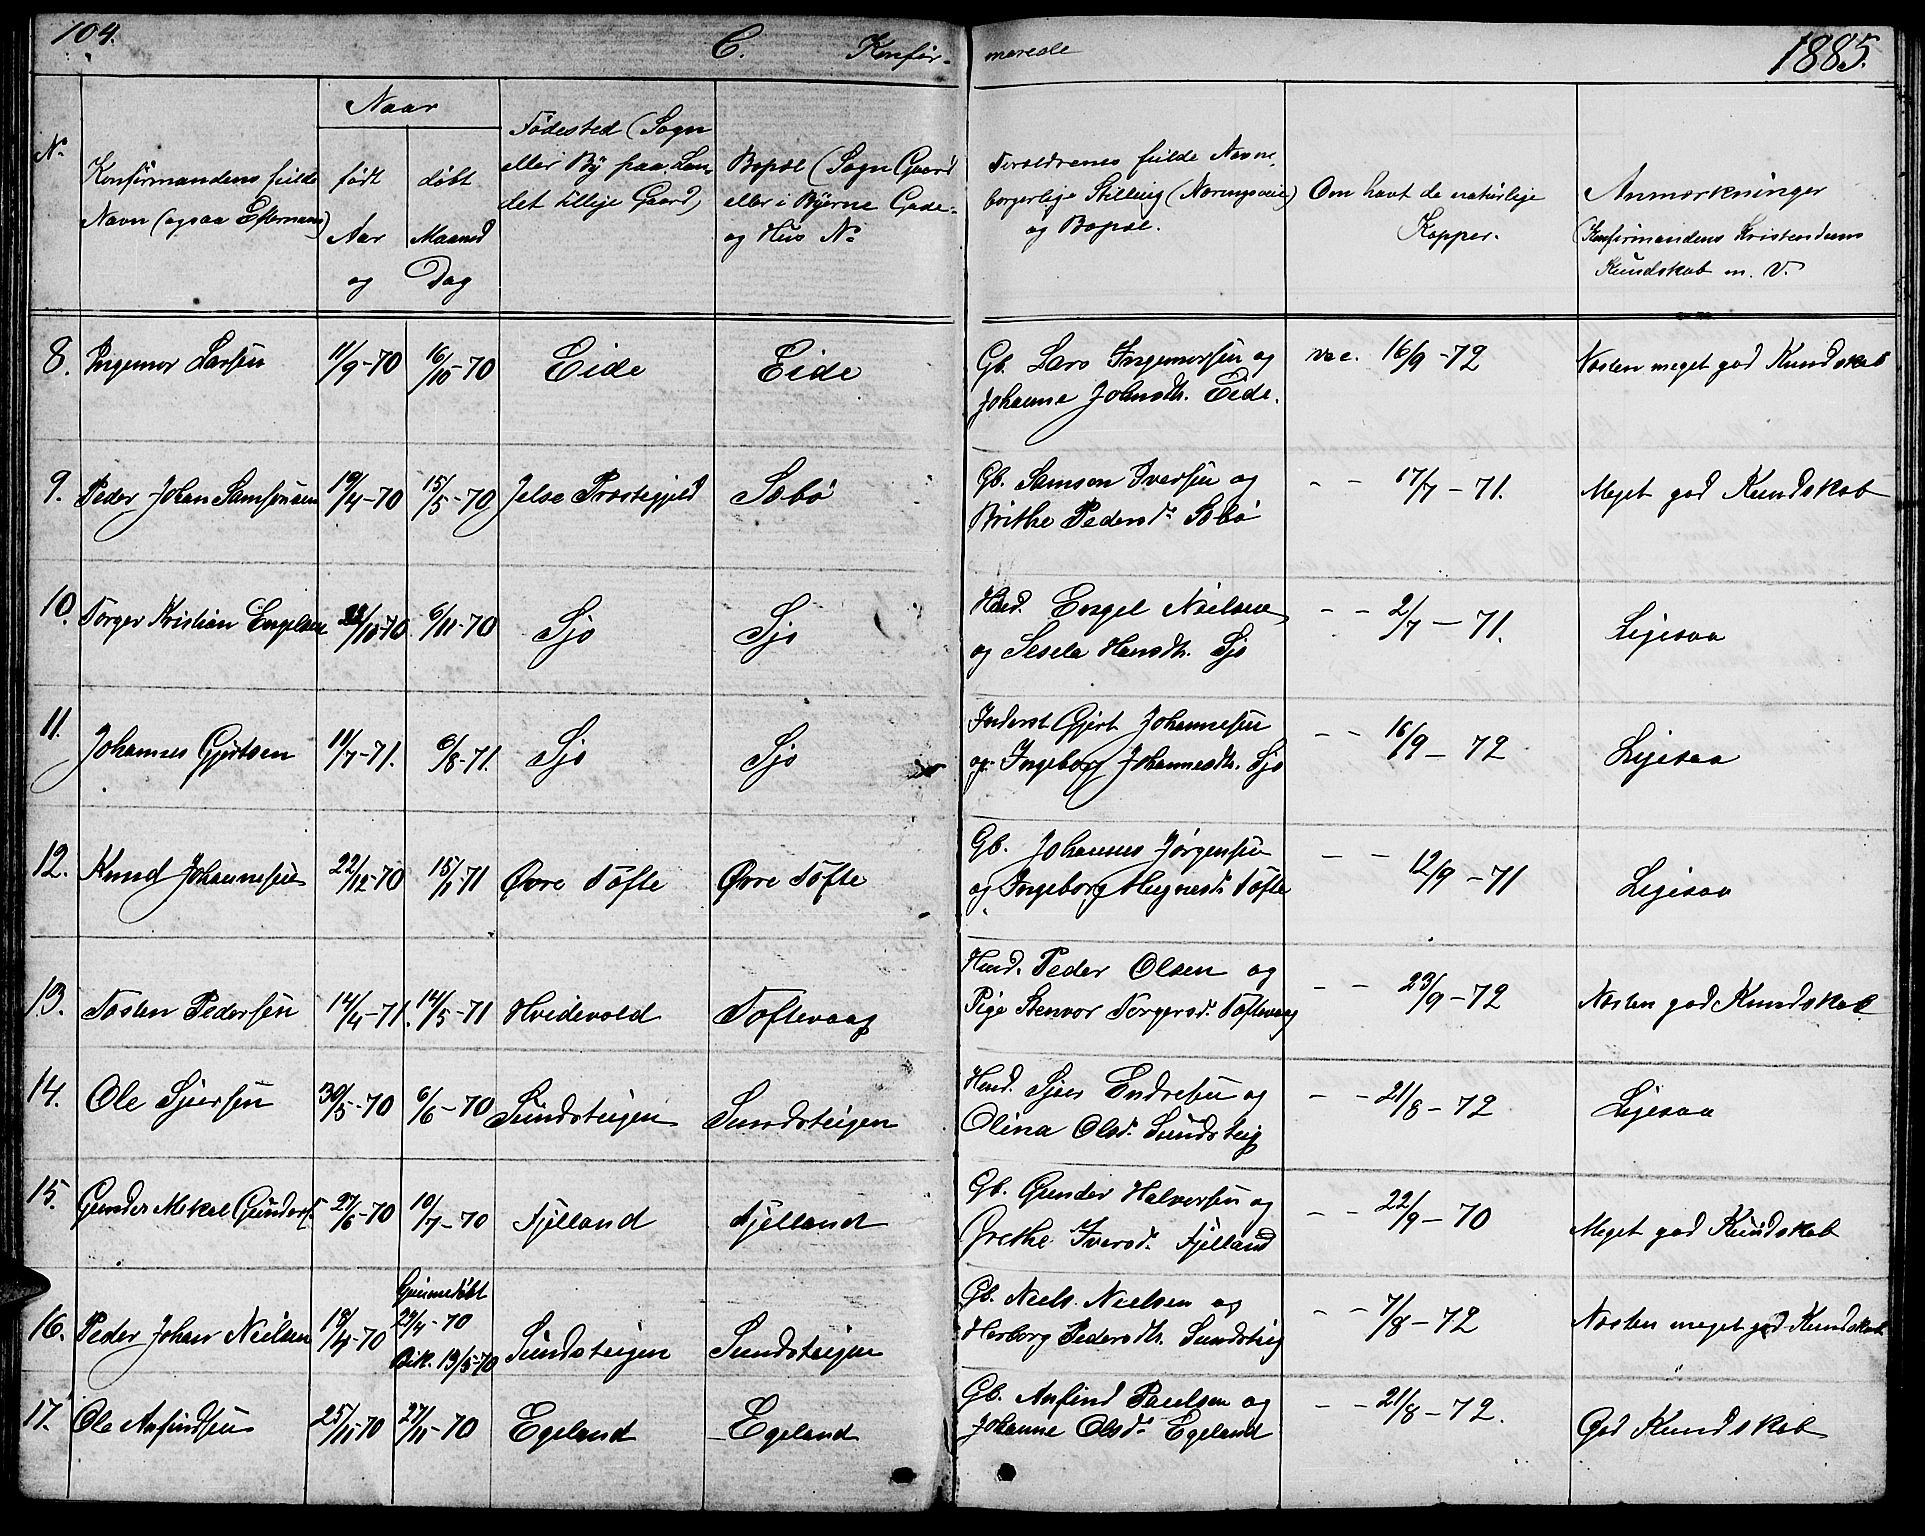 104.
C. Konfir-
merede
1885.
No
Konfirmandens fulde
Navn (ogsaa Efternavn)
Naar
født døbt
Aar Maaned
og Dag
Fødested (Sogn
eller By paa Lan-
det tillige Gaard)
Bopæl (Sogn Gaard
eller i Byerne Gade-
og Hus No
Foreldrenes fulde Navne,
borgerlige Stilling (Næringsvei)
og Bopæl.
Om havt de naturlige
Kopper.
Anmærkninger
(Konfirmandens Kristendoms
Kundskab m. V.
8. Ingemor Larsen 11/9-70 16/10-70 Eide Eide
Gb. Lars Ingemorsen og
Johanne Johnsdtr. Eide.
vac. 16/9-72 Næsten meget god Kundskab
9. Peder Johan Samsonsen 19/4-70 15/5-70 Jelse Præstegjeld Søbø
Gb. Samson Iversen og
Brithe Pedersd. Søbø
- - 17/7-71. Meget god Kundskab
10. Torger Kristian Engelsen /10-70 6/11-70 Sjo Sjo
Hmd. Engel Nielsen
og Sesela Hansdtr. Sjo
- - 2/7-71. Ligesaa
11. Johannes Gjertsen 11/7-71. 6/8-71. Sjo Sjo
Inderst Gjert Johannesen
og Ingeborg Johannesdtr. Sjo
- - 16/9-72 Ligesaa
12. Knud Johannesen 22/12-70 15/1-71 Øvre Tofte Øvre Tofte
Gb. Johannes Jørgensen
og Ingeborg Magnesd. Tofte
- - 12/9-71 Ligesaa
13. Tosten Pedersen 14/4-71. 14/5-71 Hvidevold Toftevaag
Hmd. Peder Olsen og
Pige Stenvor Torgersd. Toftevaag
- - 23/9-72 Næsten god Kundskab
14. Ole Sjursen 30/5-70 6/6-70 Sundsteigen Sundsteigen
Hmd. Sjur Endresen og
Olina Olsd. Sundsteig
- - 21/8-72 Ligesaa
15. Gunder Mikal Gunders. 27/6-70 10/7-70 Fjelland Fjelland
Gb. Gunder Halvorsen og
Grethe Iversd. Fjelland
- - 22/9-70 Meget god Kundskab
16. Peder Johan Nielsen 18/4-70 Hjemmedøbt
29/4-70
Bek. 13/5-70 Sundsteigen Sundsteigen
Gb. Niels Nielsen og
Herborg Pedersdtr. Sundsteig
- - 7/8-72 Næsten meget god Kundskab
17. Ole Anfindsen 25/11-70 27/11-70 Egeland Egeland
Gb. Anfind Paulsen og
Johanne Olsd. Egeland
- - 21/8-72. God Kundskab